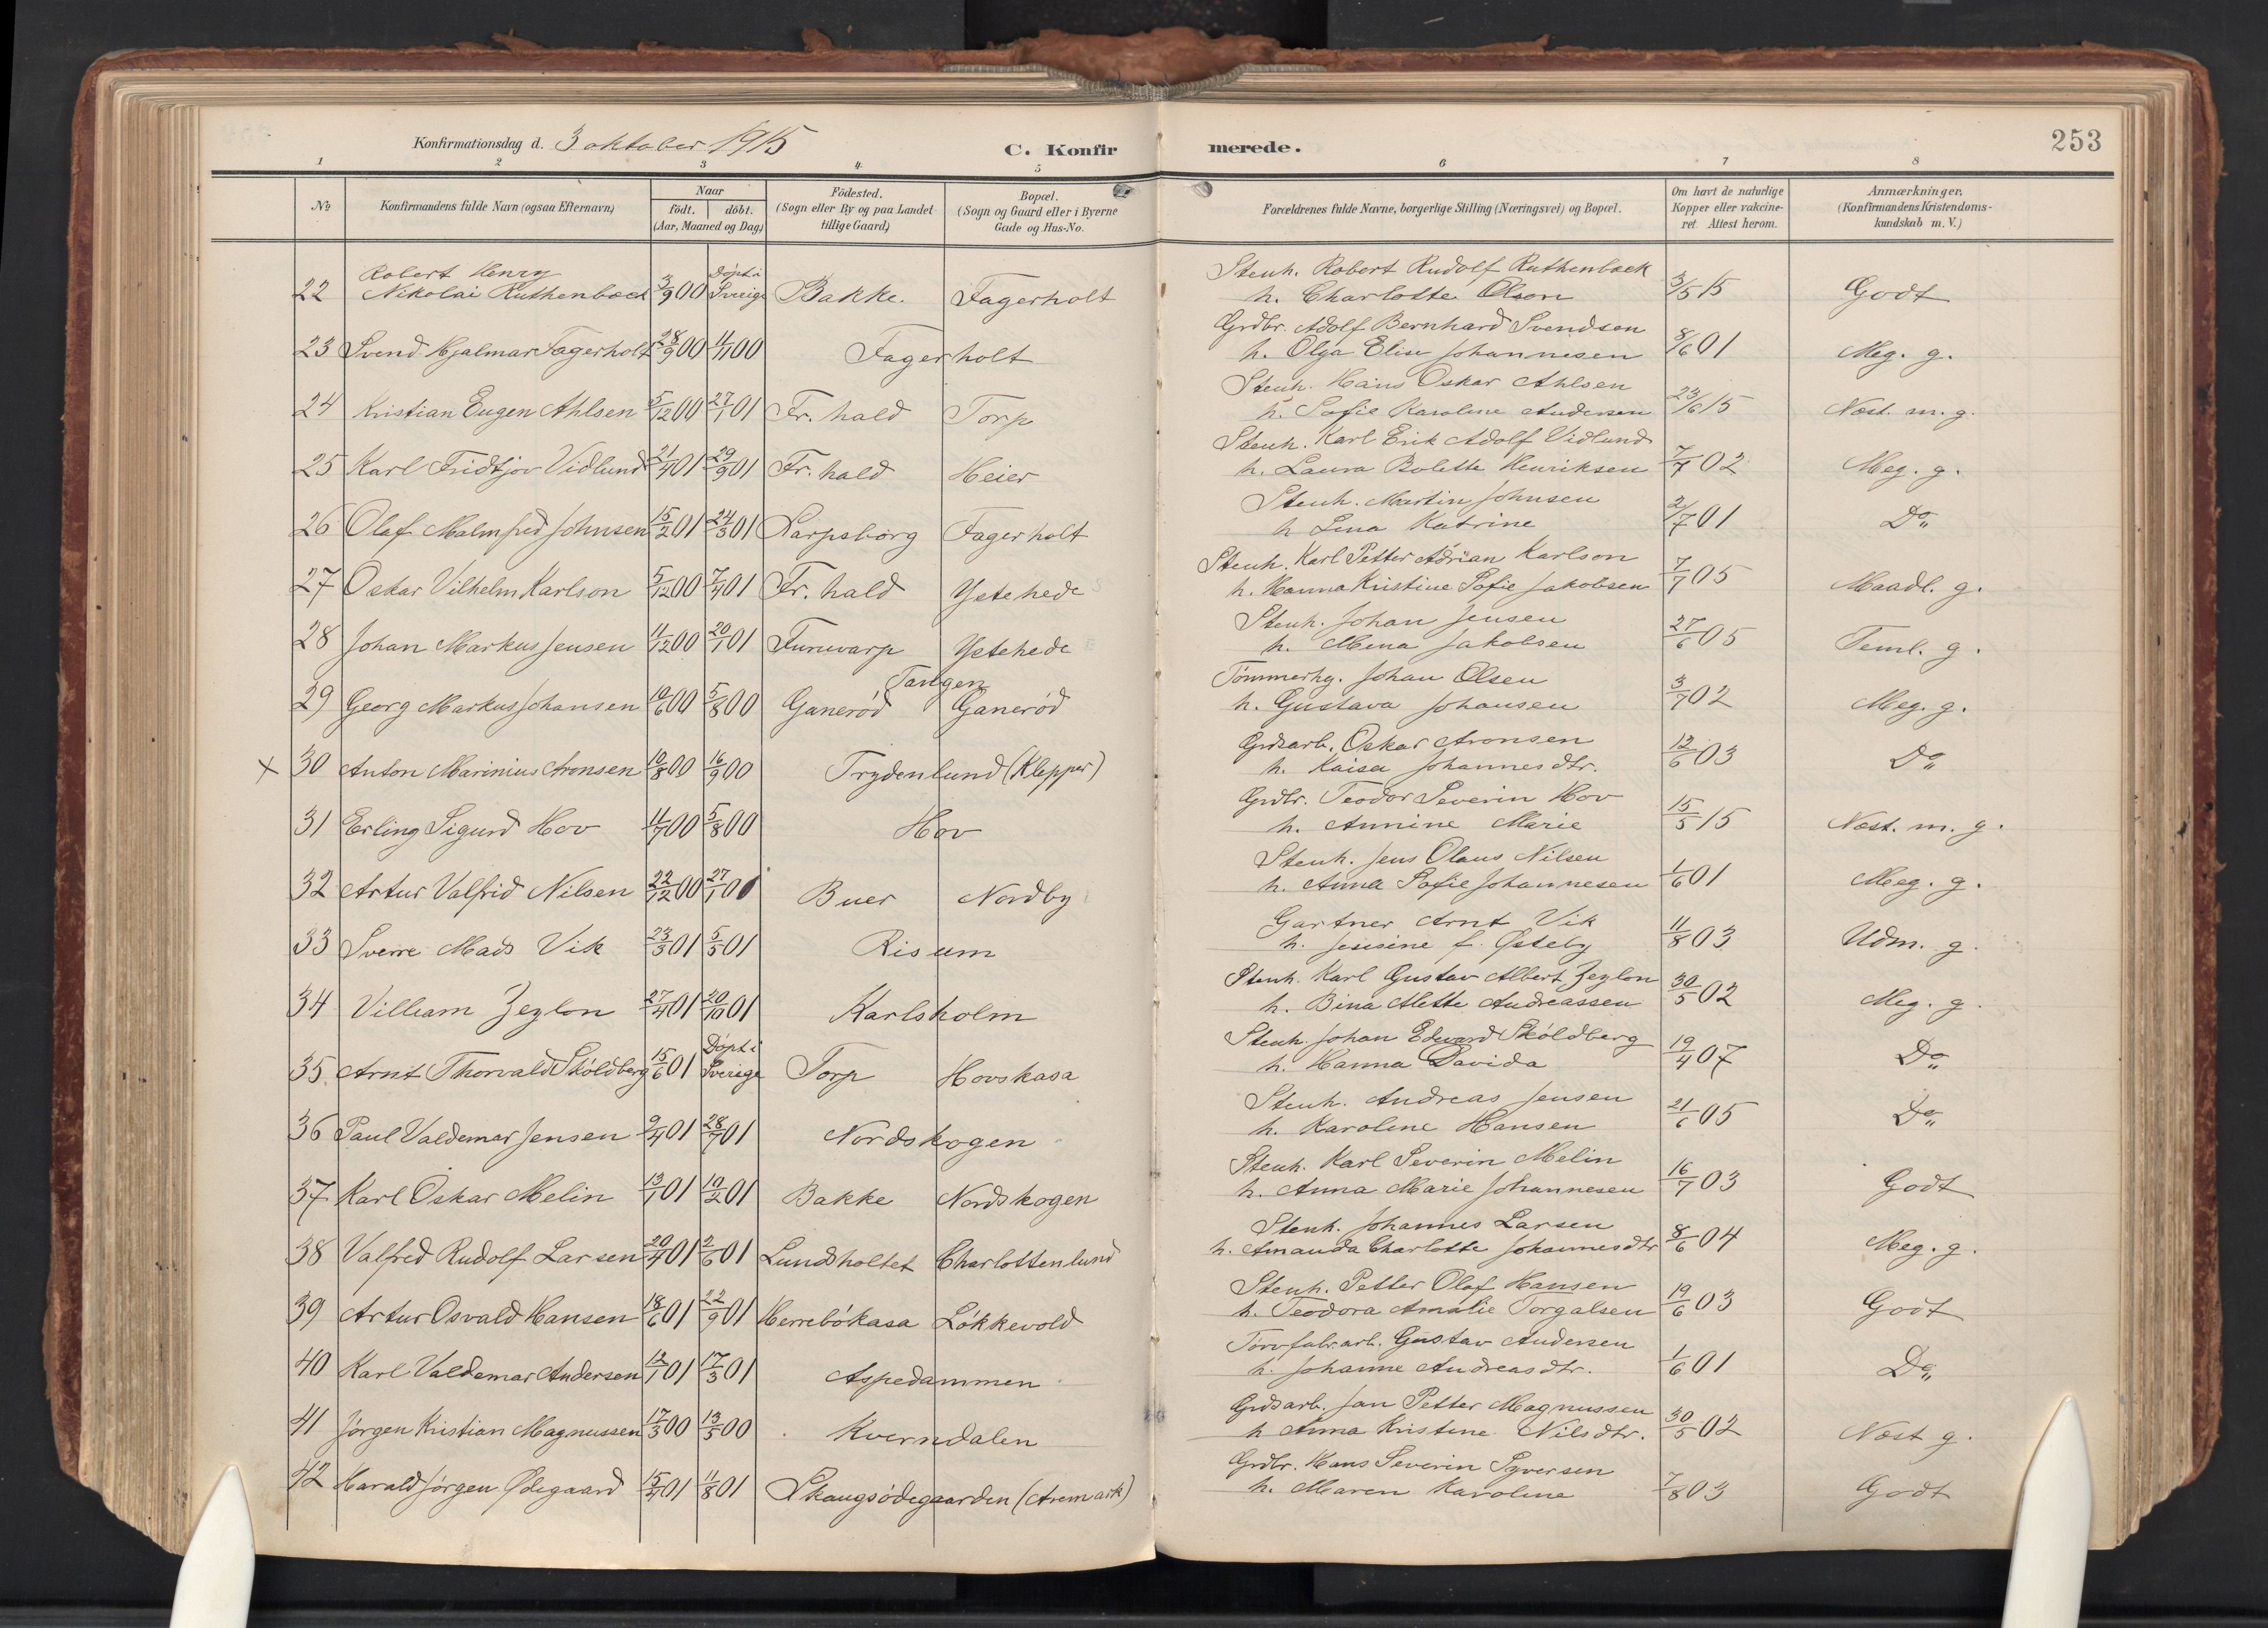 Konfirmationsdag d. 3 oktober 1915
C. Konfir
merede.
253
1 2 3 4 5 6 7 8
No
Konfirmandens fulde Navn (ogsaa Efternavn)
Naar
födt. döbt.
(Aar, Maaned og Dag)
Födested.
(Sogn eller By og paa Landet
tillige Gaard)
Bopæl.
(Sogn og Gaard eller i Byerne
Gade og Hus-No.
Forældrenes fulde Navne, borgerlige Stilling (Næringsvei) og Bopæl.
Om havt de naturlige
Kopper eller vakcine-
ret. Attest herom.
Anmærkninger.
(Konfirmandens Kristendoms-
kundskab m. V.)
Robert Henry
22 Nikolai Ruthenback 3/9 00 Döpt i Sverige Bakke. Fagerholt
Stenh. Robert Rudolf Ruthenback
h. Charlotte Olson 3/5 15 Godt
23 Svend Hjalmar Fagerholt 28/9 00 4/11 00 Fagerholt
Grdbr. Adolf Bernhard Svendsen
h. Olga Elise Johannesen 8/6 01 Meg. g.
24 Kristian Eugen Ahlsen 5/12 00 27/1 01 Fr. hald Torp
Stenh. Hans Oskar Ahlsen
h. Sofie Karoline Andersen 23/6 15 Næst. m. g.
25 Karl Fridtjov Vidlund 21/4 01 29/9 01 Fr. hald Heier
Stenh. Karl Erik Adolf Vidlund
h. Laura Bolette Henriksen 7/7 02 Meg. g.
26 Olaf Malmfred Johnsen 15/2 01 24/3 01 Sarpsborg Fagerholt
Stenh. Martin Johnsen
h Lina Katrine 2/7 01 Do„
27 Oskar Vilhelm Karlson 5/12 00 7/4 01 Fr. hald Ystehede
Stenh. Karl Petter Adrian Karlson
h. Hanna Kristine Sofie Jakobsen 7/7 05 Maadl. g.
28 Johan Markus Jensen 11/12 00 20/1 01 Furuvarp Ystehede
Stenh. Johan Jensen
h. Mena Jakobsen 27/6 05 Teml. g.
Tangen
29 Georg Markus Johansen 10/6 00 5/8 00 Ganeröd Ganeröd
Tömmerhg. Johan Olsen
h. Gustava Johansen 3/7 02 Meg. g.
x 30 Anton Marinius Aronsen 10/8 00 16/9 00 Trydenlund (Klepper)
Grdsarb. Oskar Aronsen
h. Kaisa Johannesdtr. 12/6 03 Do„
31 Erling Sigurd Hov 11/7 00 5/8 00 Hov
Grdbr. Teodor Severin Hov
h. Annine Marie 15/5 15 Næst. m. g.
32 Artur Valfrid Nilsen 22/12 00 27/1 Buer Nordby
Stenh. Jens Olaus Nilsen
h. Anna Sofie Johannesen 1/6 01 Meg. g.
33 Sverre Mads Vik 23/3 01 5/5 01 Risum
Gartner Arnt Vik
h. Jensine f. Østeby 11/8 03 Udm. g.
34 Villiam Zeylon 27/4 01 20/10 01 Karlsholm
Stenh. Karl Gustav Albert Zeylon
h. Bina Alette Andreassen 30/5 02 Meg. g.
35 Arnt Thorvald Sköldberg 15/6 01 Döpt i Sverige Torp Hovskasa
Stenh. Johan Edvard Sköldberg
h. Hanna Davida 19/4 07 Do„
36 Paul Valdemar Jensen 9/4 01 28/7 01 Nordskogen
Stenh. Andreas Jensen
h. Karoline Hansen 21/6 05 Do„
37 Karl Oskar Melin 13/1 01 10/2 01 Bakke Nordskogen
Stenh. Karl Severin Melin
h. Anna Marie Johannesen 16/7 03 Godt
38 Valfred Rudolf Larsen 20/4 01 2/6 01 Lundsholtet Charlottenlund
Stenh. Johannes Larsen
h. Amanda Charlotte Johannesdtr 8/6 04 Meg. g.
39 Artur Osvald Hansen 18/6 01 22/9 01 Herrebökasa Lökkevold
Stenh. Petter Olaf Hansen
h. Teodora Amalie Torgalsen 19/6 03 Godt
40 Karl Valdemar Andersen 12/1 01 17/3 01 Aspedammen
Torvfabr.arb. Gustav Andersen
h. Johanne Andreasdtr. 1/6 01 Do„
41 Jörgen Kristian Magnussen 17/3 00 13/5 00 Kverndalen
Grdsarb. Jan Petter Magnussen
h Anna Kristine Nilsdtr. 30/5 02 Næst g.
42 Harald Jörgen Ødegaard 15/4 01 11/8 01 Skaugsödegaarden (Aremark)
Grdbr. Hans Severin Syversen
h. Maren Karoline 7/8 03 Godt